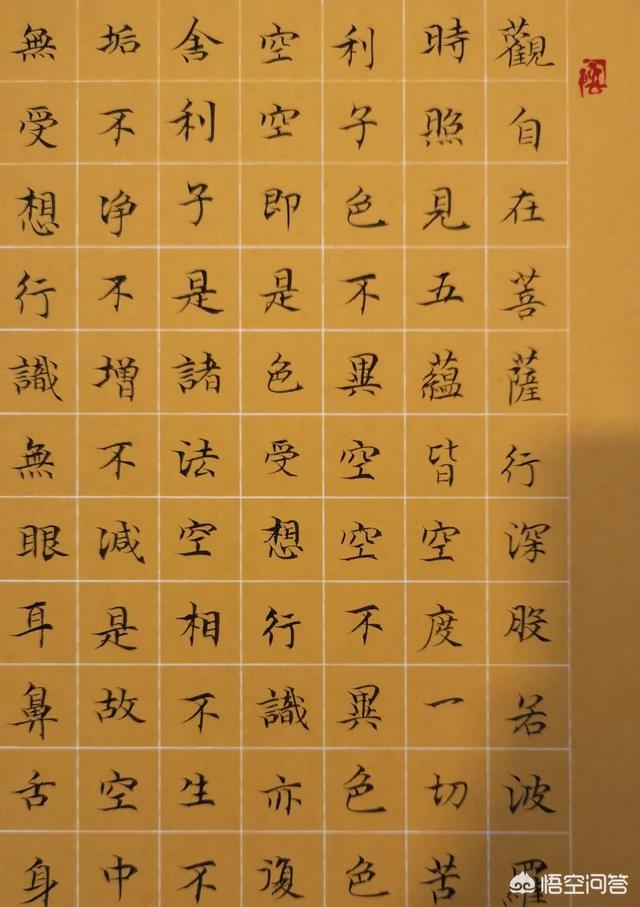 觀自在菩薩行深般若波羅
時照見五蘊皆空度一切苦
利子色不異空空不異色色
空空即是色受想行識亦復
舍利子是諸法空相不生不
垢不净不增不減是故空中
無受想行識無眼耳鼻舌身
悟空问答